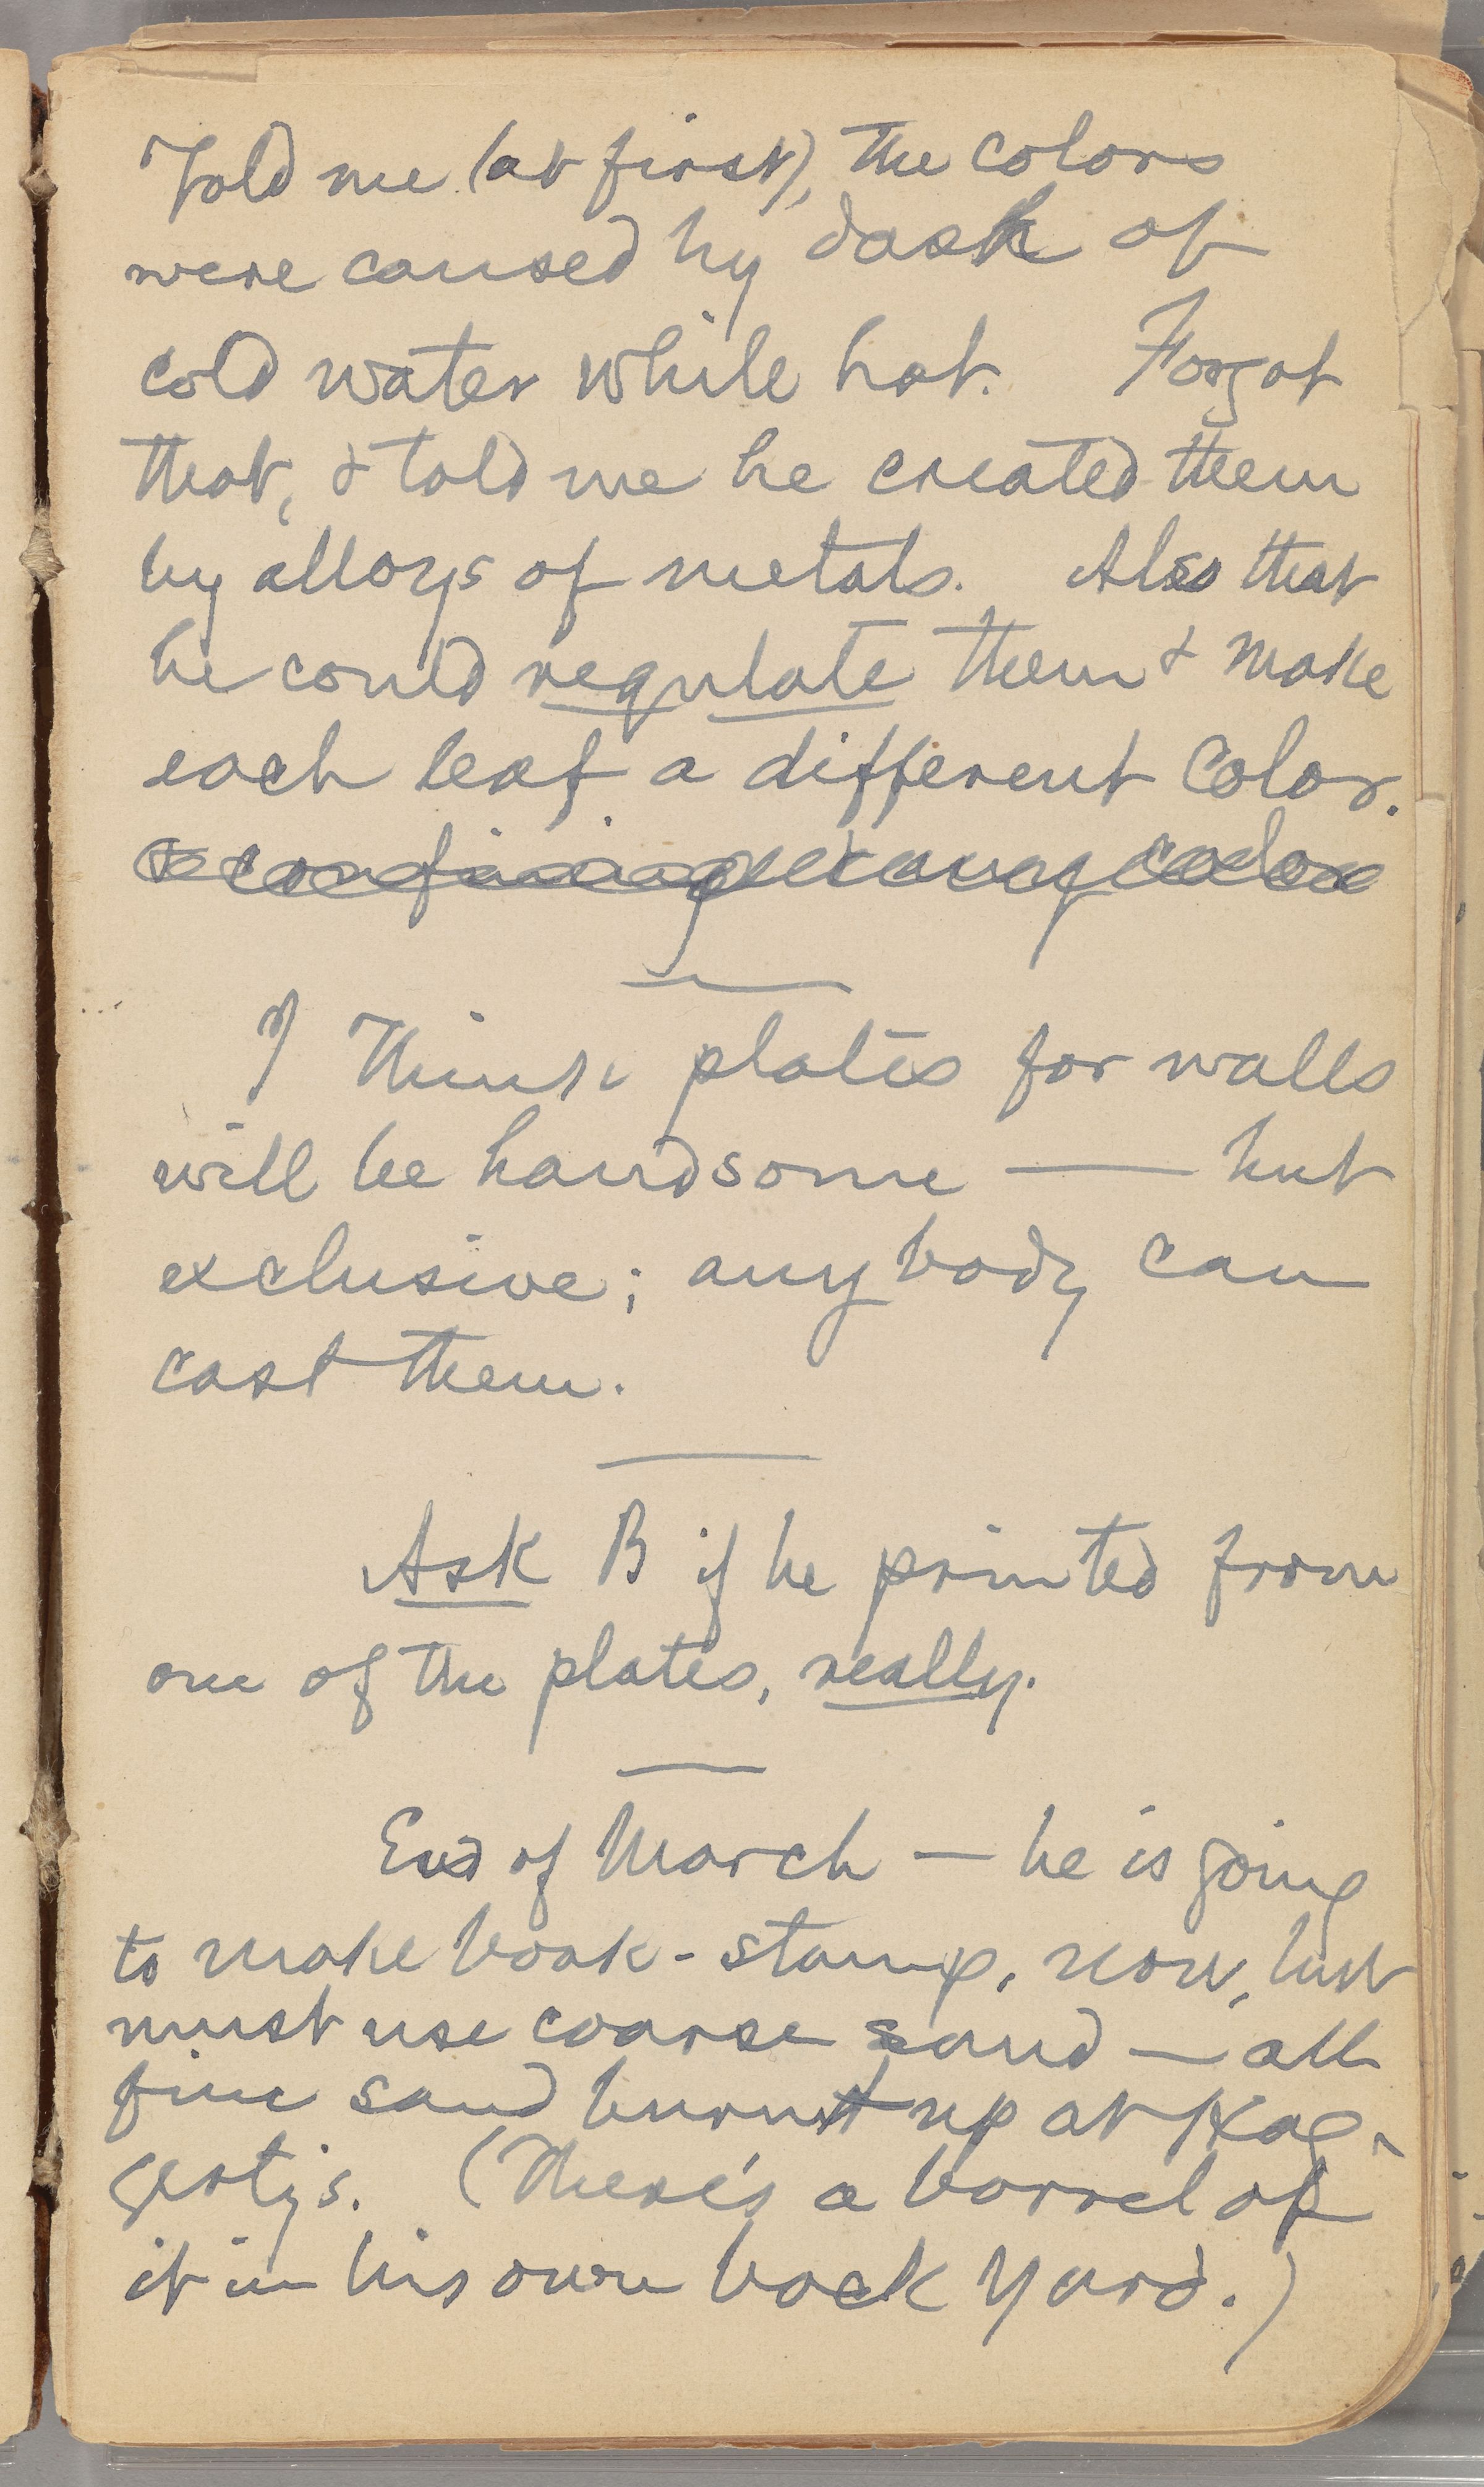 Told me (at first), the colors
were caused by dash of
cold water while hot. Forgot
that, & told me he created them
by alloys of metals. Also that
he could regulate them & make
each leaf a different color.
& confining color
I think plates for walls
will be handsome — but
exclusive; anybody can
cast them.
Ask B if he printed from
one of the plates, really.
End of March — he is going
to make book-stamp, now, but
must use coarse sand — all
fine sand burnt up at Hag-
gerty's. (There's a barrel of
it in his own back yard.)